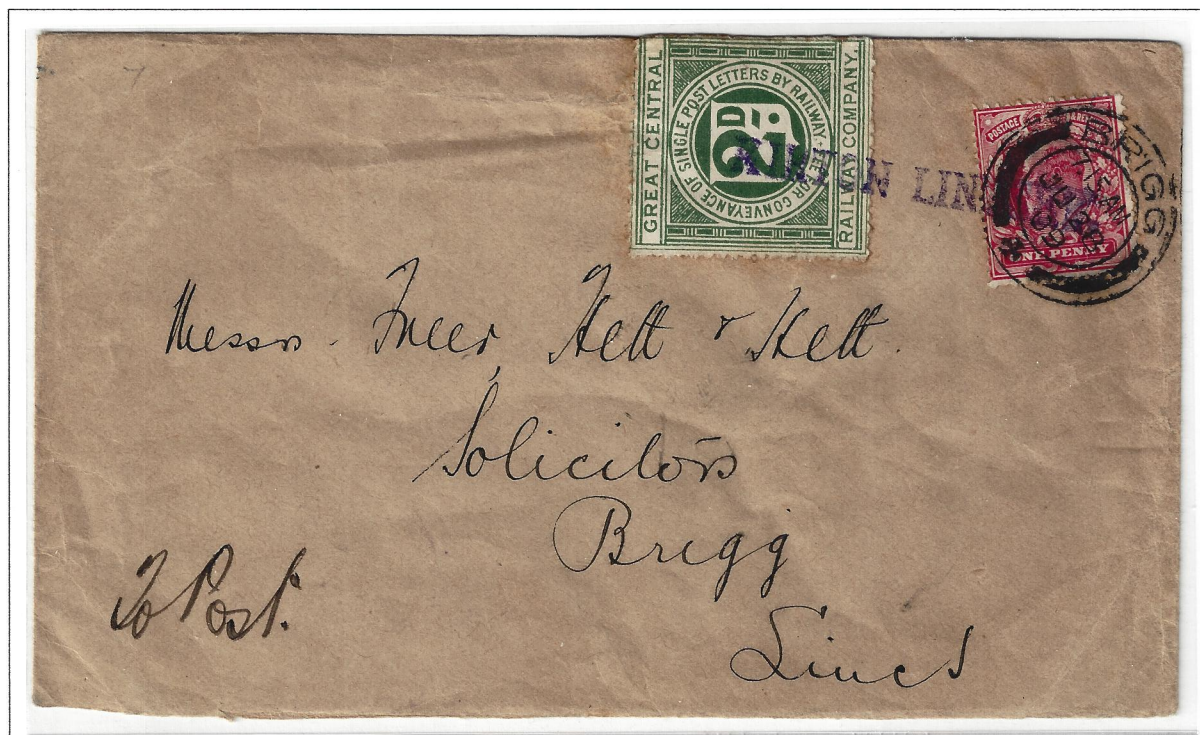 GREAT CENTRAL
RAILWAY COMPANY.
FEE FOR CONVEYANCE OF SINGLE POST LETTERS BY RAILWAY
2D.
KIRTON LIND
POSTAGE & REVENUE
ONE PENNY
BRIGG
JU 26
09
Messrs. Freer, Hett & Hett.
Solicitors
Brigg
Lincs
To Post.